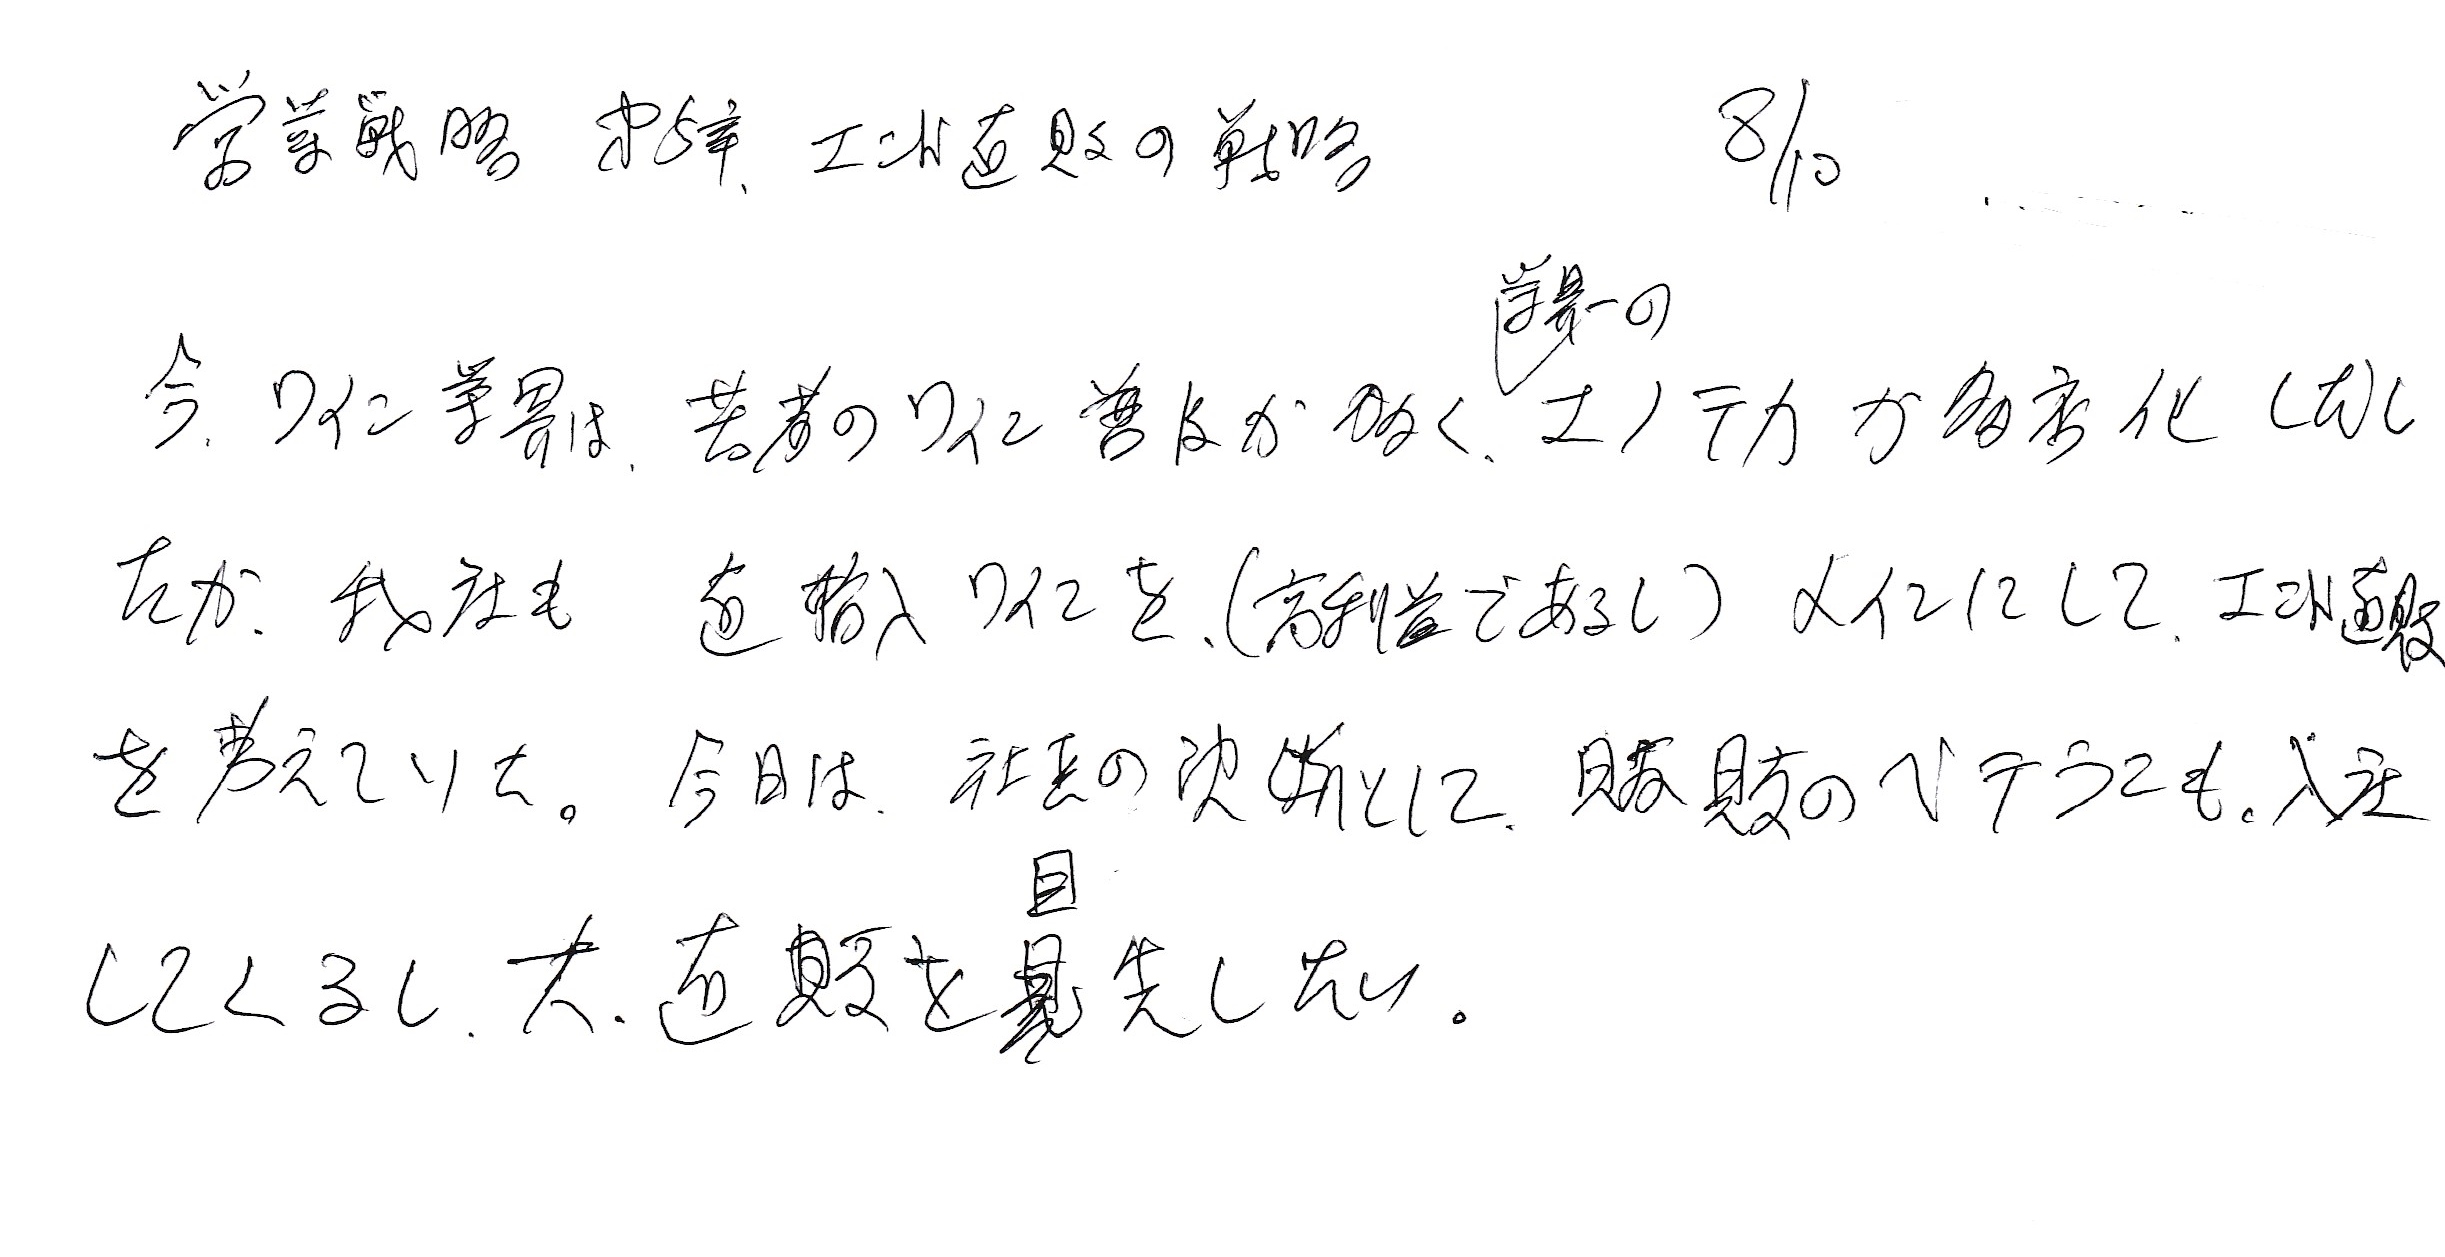 営業戦略 第5章、エンド直販の戦略 8/10
業界一の
今、ワイン業界は、若者のワイン普及がなく、エノテカが多家化しだし
たが、我社も 直輸入ワインを、(高利益であるし) メインにして、エンド直販
を考えていた。今日は、社長の決断として、販のベテランも、入社
してくるし、大、直販を目
先したい。